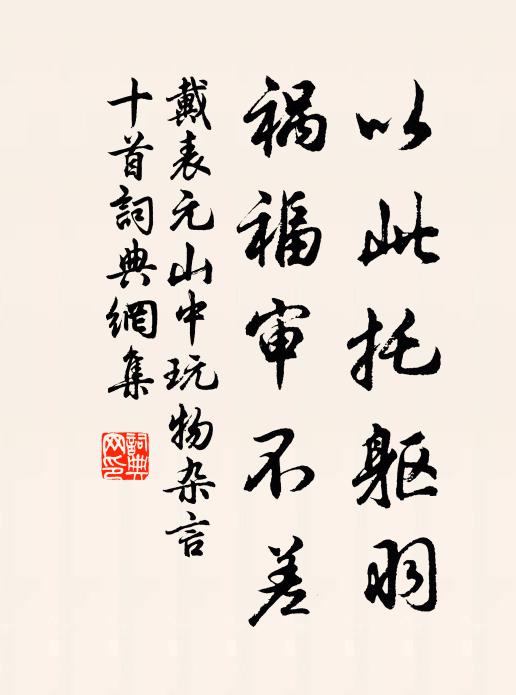 以此托躯明
祸福审不差
戴表元山中玩物杂言
十首詞典網集
詞典
网印